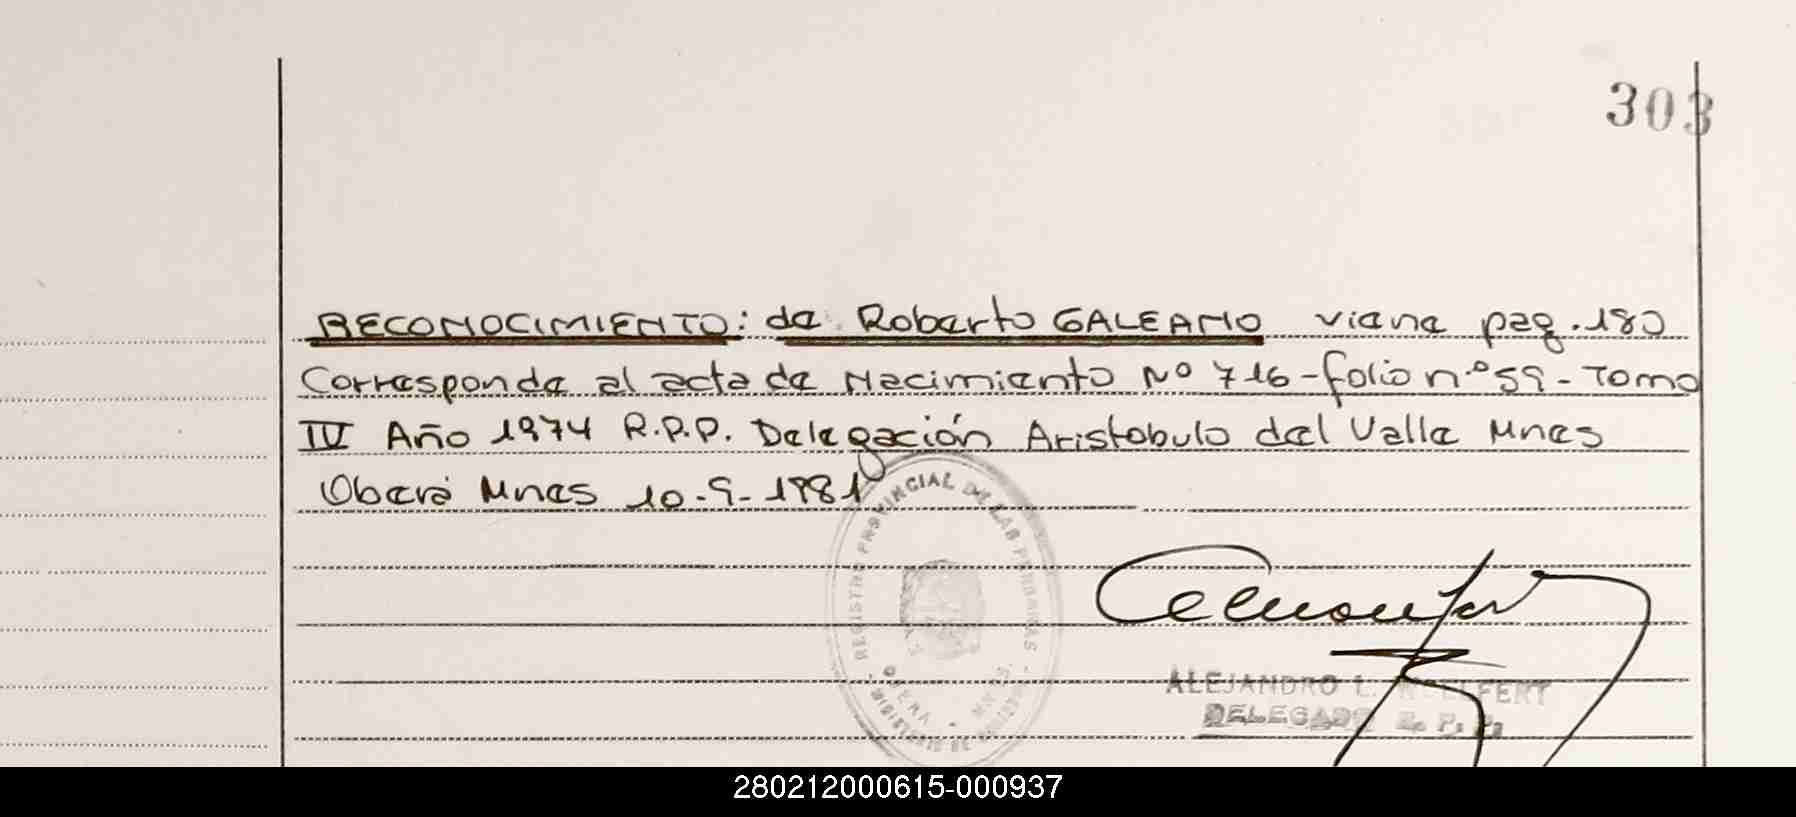 303
RECONOCIMIENTO: de Roberto GALEANO viene pag. 180
Corresponde al acta de Nacimiento Nº 716-folio nº 59-Tomo
IV Año 1974 R.P.P. Delegación Aristobulo del Valle Mnes
Oberá Mnes 10-9-1981
REGISTRO PROVINCIAL DE LAS PERSONAS
OBERA - MNES.
MINISTERIO DE
ALEJANDRO L.
DELEGADO R. P. P.
280212000615-000937